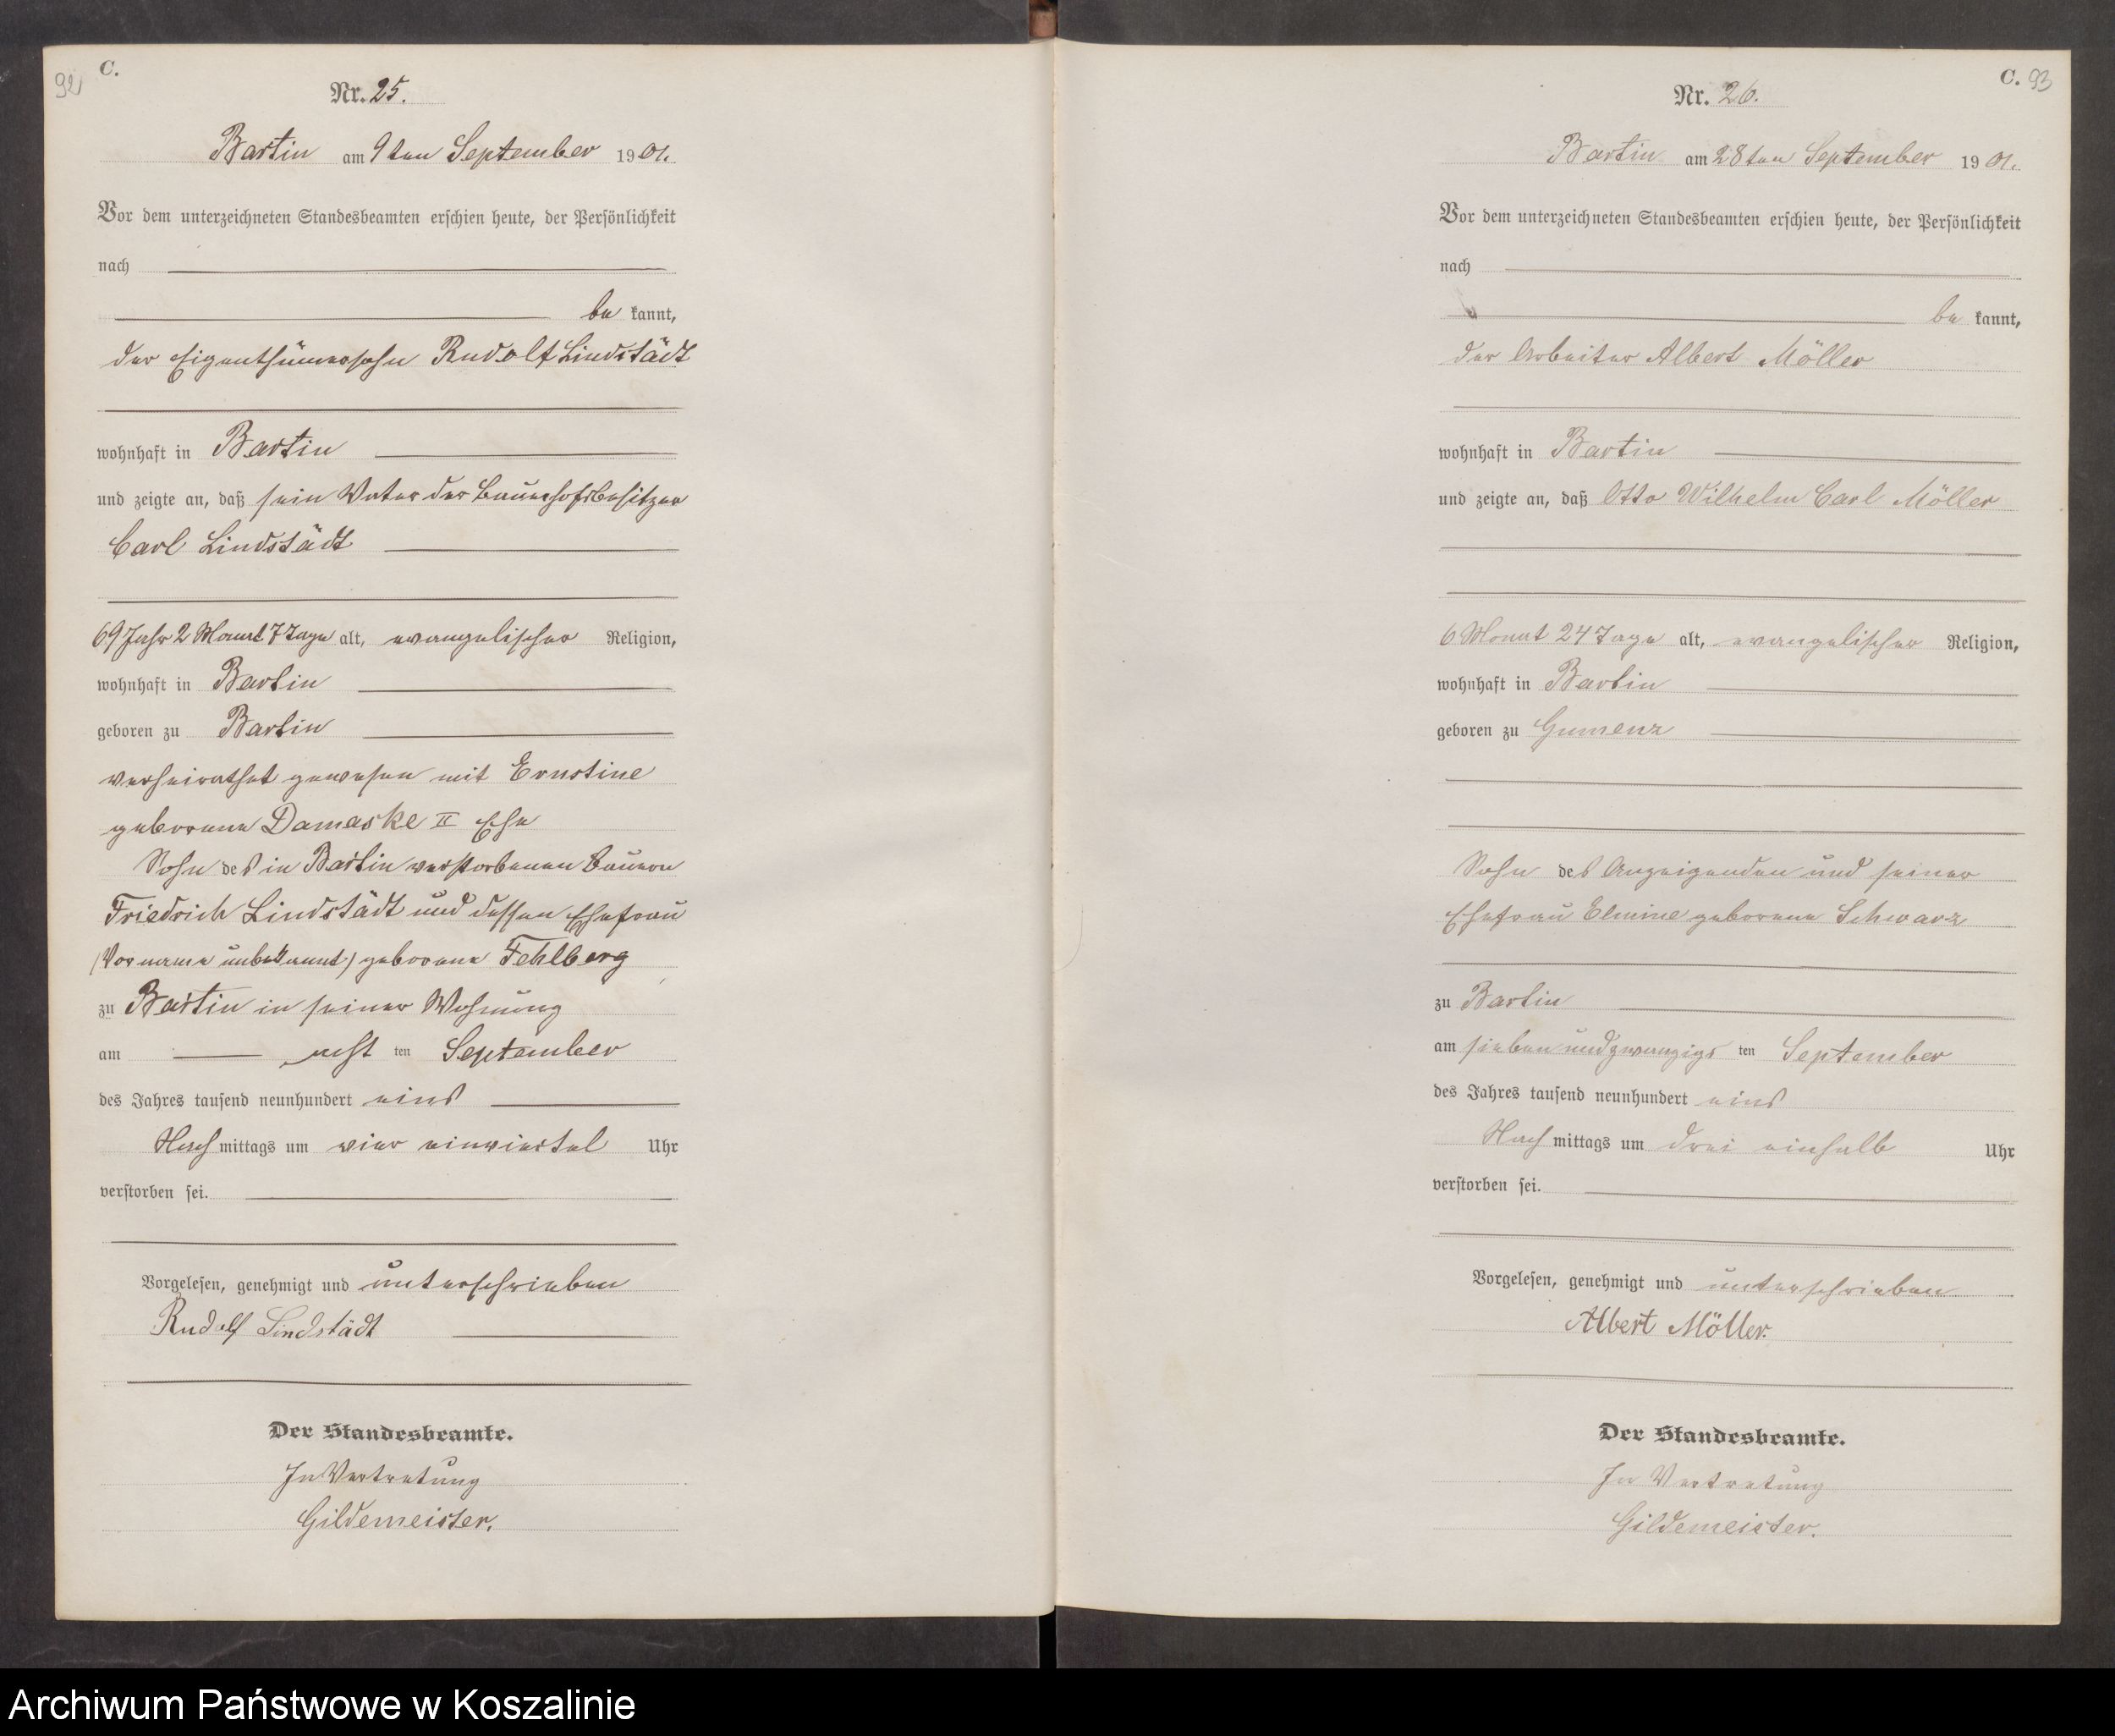 92
C.
Nr. 25.
Bartin am 9ten September 1901.
Vor dem unterzeichneten Standesbeamten erschien heute, der Persönlichkeit
nach
be kannt,
der Eigenthümersohn Rudolf Lindstädt
wohnhaft in Bartin
und zeigte an, daß sein Vater der Bauerhofsbesitzer
Carl Lindstädt
69 Jahr 2 Monat 7 Tage alt, evangelischer Religion,
wohnhaft in Bartin
geboren zu Bartin
verheirathet gewesen mit Ernstine
geborene Damaske II Ehe
Sohn des in Bartin verstorbenen Bauern
Friedrich Lindstädt und dessen Ehefrau
(Vorname unbekannt) geborene Fehlberg
zu Bartin in seiner Wohnung
am acht ten September
des Jahres tausend neunhundert eins
Nach mittags um vier einviertel Uhr
verstorben sei.
Vorgelesen, genehmigt und unterschrieben
Rudolf Lindstädt
Der Standesbeamte.
In Vertretung
Gildemeister.
C. 93
Nr. 26.
Bartin am 28ten September 1901.
Vor dem unterzeichneten Standesbeamten erschien heute, der Persönlichkeit
nach
be kannt,
der Arbeiter Albert Möller
wohnhaft in Bartin
und zeigte an, daß Otto Wilhelm Carl Möller
6 Monat 24 Tage alt, evangelischer Religion,
wohnhaft in Bartin
geboren zu Gumenz
Sohn des Anzeigenden und seiner
Ehefrau Elmine geborene Schwarz
zu Bartin
am siebenundzwanzigs ten September
des Jahres tausend neunhundert eins
Nach mittags um drei einhalb Uhr
verstorben sei.
Vorgelesen, genehmigt und unterschrieben
Albert Möller.
Der Standesbeamte.
In Vertretung
Gildemeister.
Archiwum Państwowe w Koszalinie